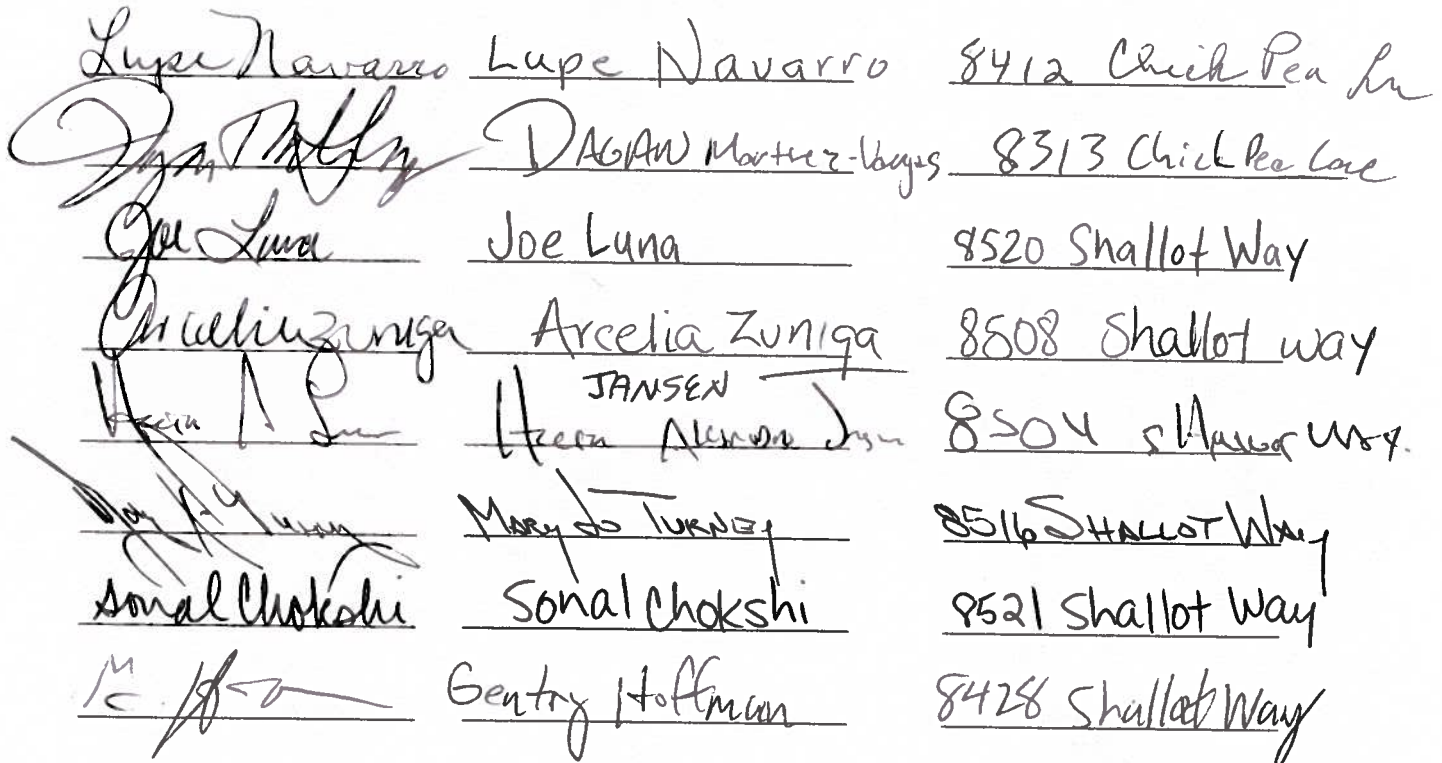 Lupe Navarro Lupe Navarro 8412 Chick Pea Ln
DAGAN Martinez-Vargas 8313 Chick Pea Lane
Joe Luna Joe Luna 8520 Shallot Way
Arcelia Zuniga Arcelia Zuniga 8508 Shallot way
JANSEN
8504 Shallot Way.
MARY Jo TURNEY 8516 SHALLOT WAY
Sonal Chokshi Sonal Chokshi 8521 Shallot Way
Gentry Hoffman 8428 Shallot Way